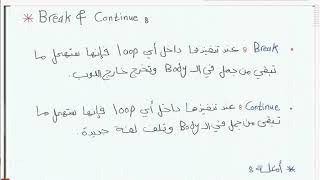 * Break & Continue :
. Break : عند تنفيذها داخل أي loop فإنها ستهمل ما
تبقى من جمل في الـ Body وتخرج خارج اللوب.
. Continue : عند تنفيذها داخل أي loop فإنها ستهمل ما
تبقى من جمل في الـ Body وتلف لفة جديدة.
* أمثلة :